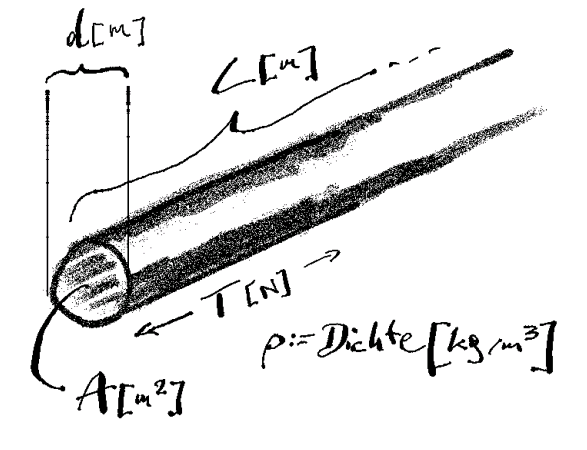 d[m]
L[m]
T[N]
ρ:=Dichte[kg/m³]
A[m²]